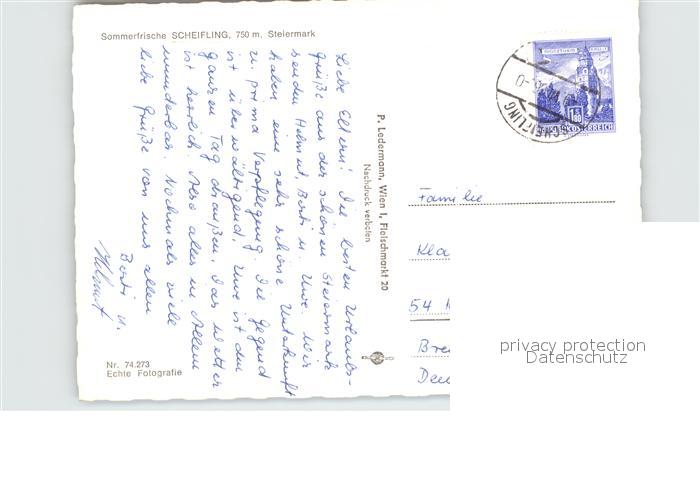 Sommerfrische SCHEIFLING, 750 m, Steiermark
Liebe Eltern! Die besten Urlaubs-
grüße aus der schönen Steiermark
senden Helmut, Berti u. Uwe. Wir
haben eine sehr schöne Unterkunft
u. prima Verpflegung. Die Gegend
ist überwältigend. Uwe ist den
ganzen Tag draußen. Das Wetter
ist herrlich. Also alles in Allem
wunderbar. Nochmals viele
liebe Grüße von uns allen
Berti u.
Helmut
Nr. 74.273
Echte Fotografie
P. Ledermann, Wien I, Fleischmarkt 20
Nachdruck verboten
SCHEIFLING
1.80
Familie
Kla
54
Bre
Deu
privacy protection
Datenschutz